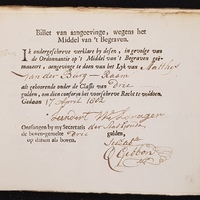 Billet van aangeevinge, wegens het
Middel van 't Begraven.
Ik ondergeschreve verklare by desen, in gevolge van
de Ordonnantie op 't Middel van 't Begraven geë-
maneert, aangevinge te doen van het Lyk van
van der Burg
als gehoorende onder de Classis van Drie
gulden, om dien conform het voorschreve Recht te voldoen.
Gedaan 17 April 1802
Leendert
Ontfangen by my Secretaris der Stad Gouda
de boven-gemelte Drie gulden,
op datum als boven.